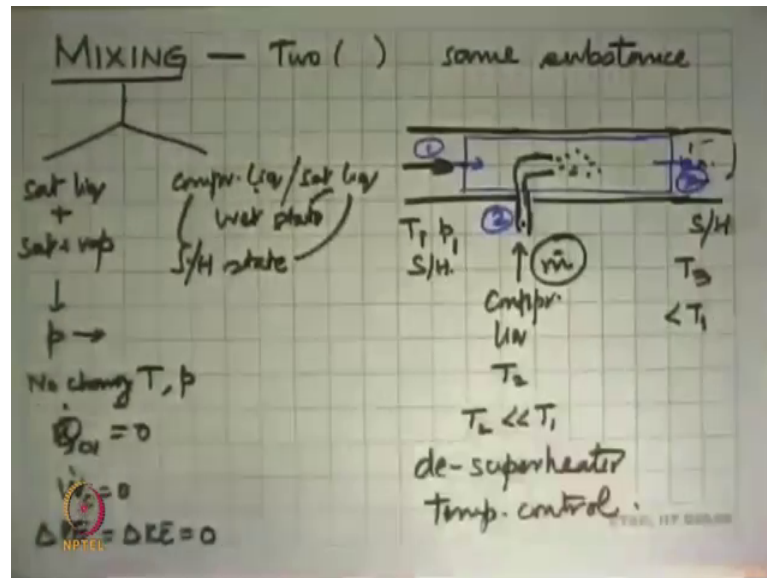 MIXING — Two ( ) same substance
sat liq
+
sat. vap
↓
p →
No change T, p
= 0
= 0
= ΔKE = 0
NPTEL
compr. liq / sat liq
wet state
S/H state
①
②
T₁ p₁
S/H.
ṁ
Compr.
liq
T₂
T₂ << T₁
de-superheater
temp. control.
S/H
T₃
< T₁